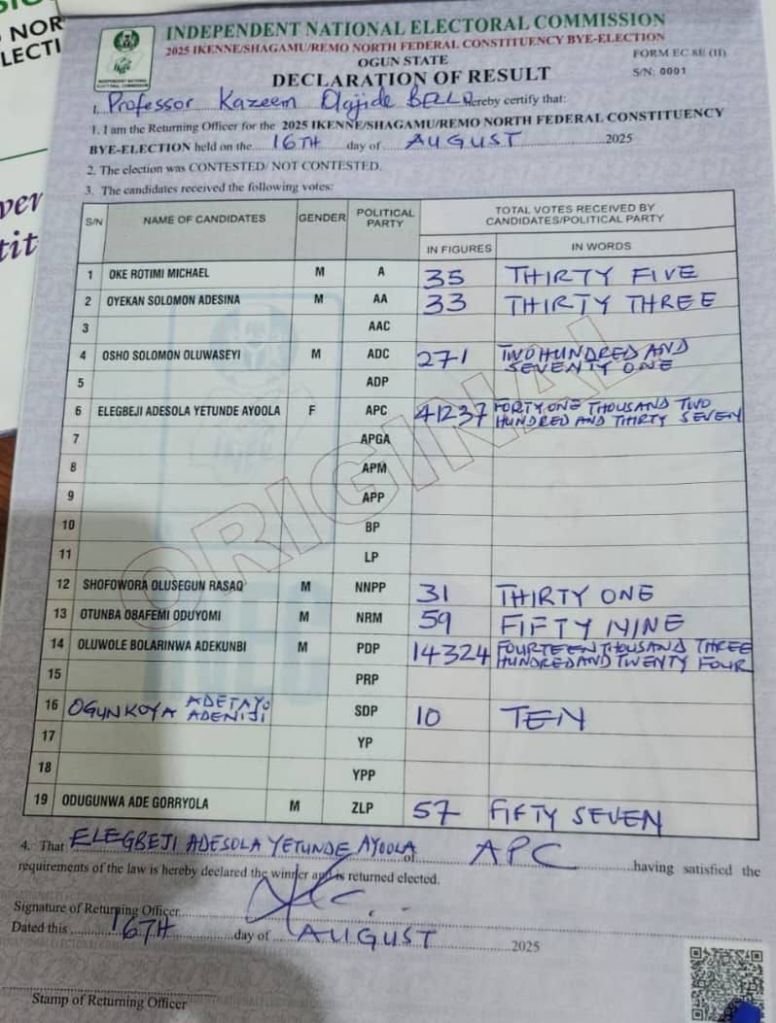 NOR
LECTI
ver
tit
INDEPENDENT NATIONAL ELECTORAL COMMISSION
2025 IKENNE/SHAGAMU/REMO NORTH FEDERAL CONSTITUENCY BYE-ELECTION
OGUN STATE
FORM EC 8E (II)
DECLARATION OF RESULT
S/N: 0001
INDEPENDENT NATIONAL ELECTORAL COMMISSION
I, Professor Kazeem Olajide BELLO hereby certify that:
1. I am the Returning Officer for the 2025 IKENNE/SHAGAMU/REMO NORTH FEDERAL CONSTITUENCY
BYE-ELECTION held on the 16TH day of AUGUST 2025
2. The election was CONTESTED/ NOT CONTESTED.
3. The candidates received the following votes:
S/N NAME OF CANDIDATES GENDER POLITICAL PARTY TOTAL VOTES RECEIVED BY CANDIDATES/POLITICAL PARTY
IN FIGURES IN WORDS
1 OKE ROTIMI MICHAEL M A 35 THIRTY FIVE
2 OYEKAN SOLOMON ADESINA M AA 33 THIRTY THREE
3 AAC
4 OSHO SOLOMON OLUWASEYI M ADC 271 TWO HUNDRED AND SEVENTY ONE
5 ADP
6 ELEGBEJI ADESOLA YETUNDE AYOOLA F APC 41237 FORTY ONE THOUSAND TWO HUNDRED AND THIRTY SEVEN
7 APGA
8 APM
9 APP
10 BP
11 LP
12 SHOFOWORA OLUSEGUN RASAQ M NNPP 31 THIRTY ONE
13 OTUNBA OBAFEMI ODUYOMI M NRM 59 FIFTY NINE
14 OLUWOLE BOLARINWA ADEKUNBI M PDP 14324 FOURTEEN THOUSAND THREE HUNDRED AND TWENTY FOUR
15 PRP
16 OGUNKOYA ADETAYO ADENIJI SDP 10 TEN
17 YP
18 YPP
19 ODUGUNWA ADE GORRYOLA M ZLP 57 FIFTY SEVEN
ORIGINAL
4. That ELEGBEJI ADESOLA YETUNDE AYOOLA of APC having satisfied the
requirements of the law is hereby declared the winner and is returned elected.
Signature of Returning Officer
Dated this 16TH day of AUGUST 2025
Stamp of Returning Officer